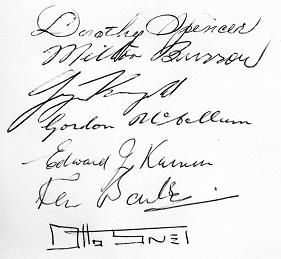 Dorothy Spencer
Milton Burrow
Gordon McCallum
Edward J. Kamm
Ken
Otto Snel